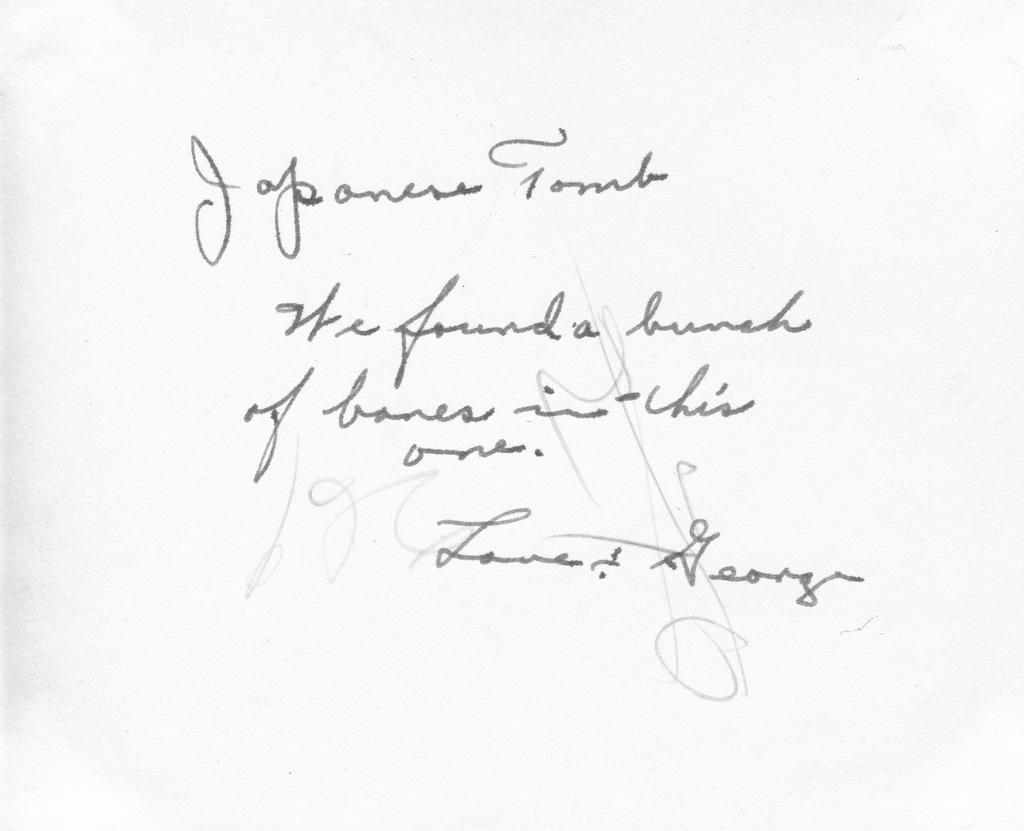 Japanese Tomb
We found a bunch
of bones in this
one.
Love, George